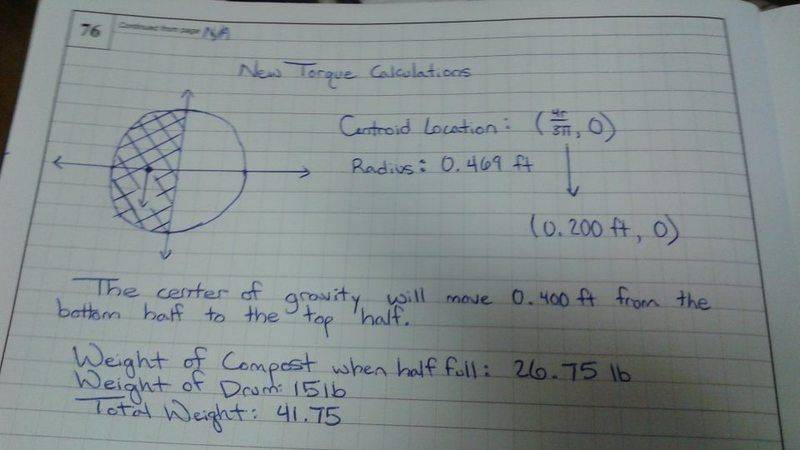 76
Continued from page N/A
New Torque Calculations
Centroid Location: (4r/3π, 0)
Radius: 0.469 ft
(0.200 ft, 0)
The center of gravity will move 0.400 ft from the
bottom half to the top half.
Weight of Compost when half full: 26.75 lb
Weight of Drum: 15 lb
Total Weight: 41.75